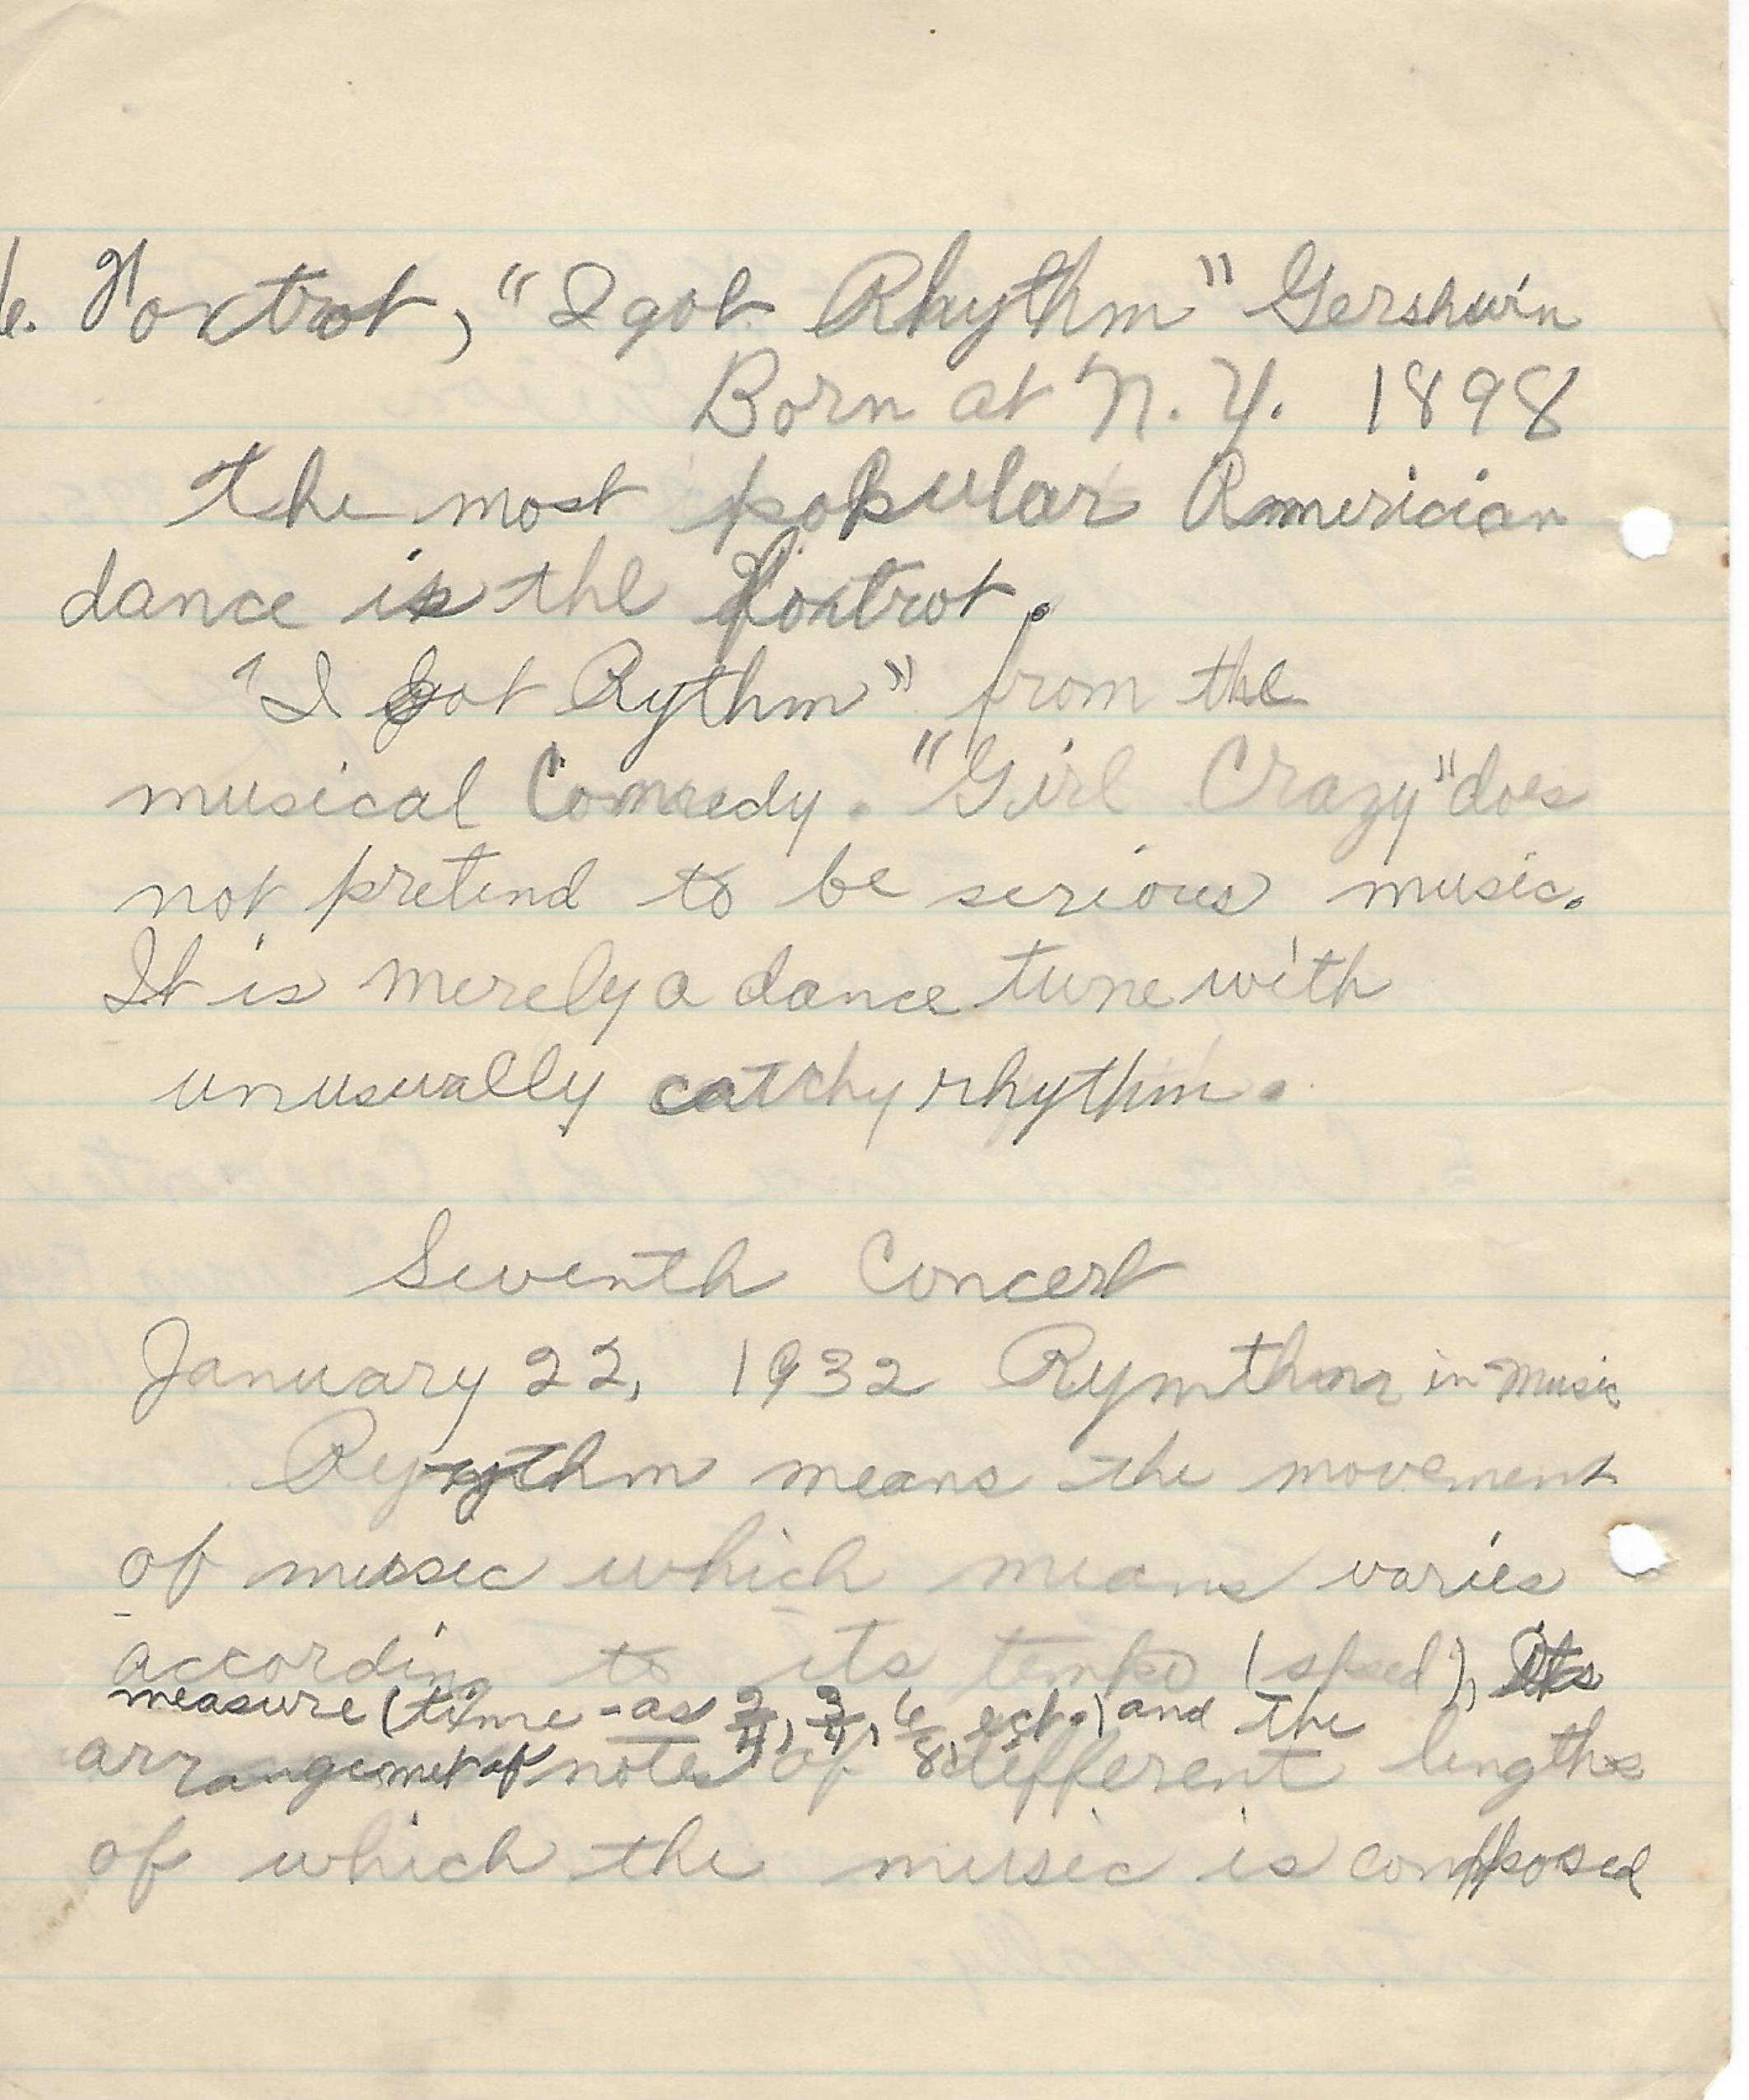 6. Foxtrot, "I got Rhythm" Gershwin
Born at N. Y. 1898
The most popular Americian
dance is the Foxtrot.
"I Got Rythm" from the
musical Comedy. "Girl Crazy" does
not pretend to be serious music.
It is merely a dance tune with
unusually catchy rhythm.
Seventh Concert
January 22, 1932 Rymthm in Music
Reyythm means the movement
of music which means varies
according to its tempo (speed), Its
measure (time - as 2/4, 3/4, 6/8, ect.) and the
arrangemet of notes of different lengths
of which the music is composed